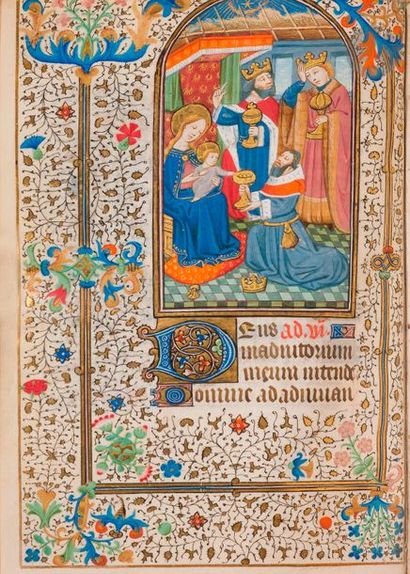 Deus ad vi.
in adiutorium
meum intende
Domine ad adiuuan